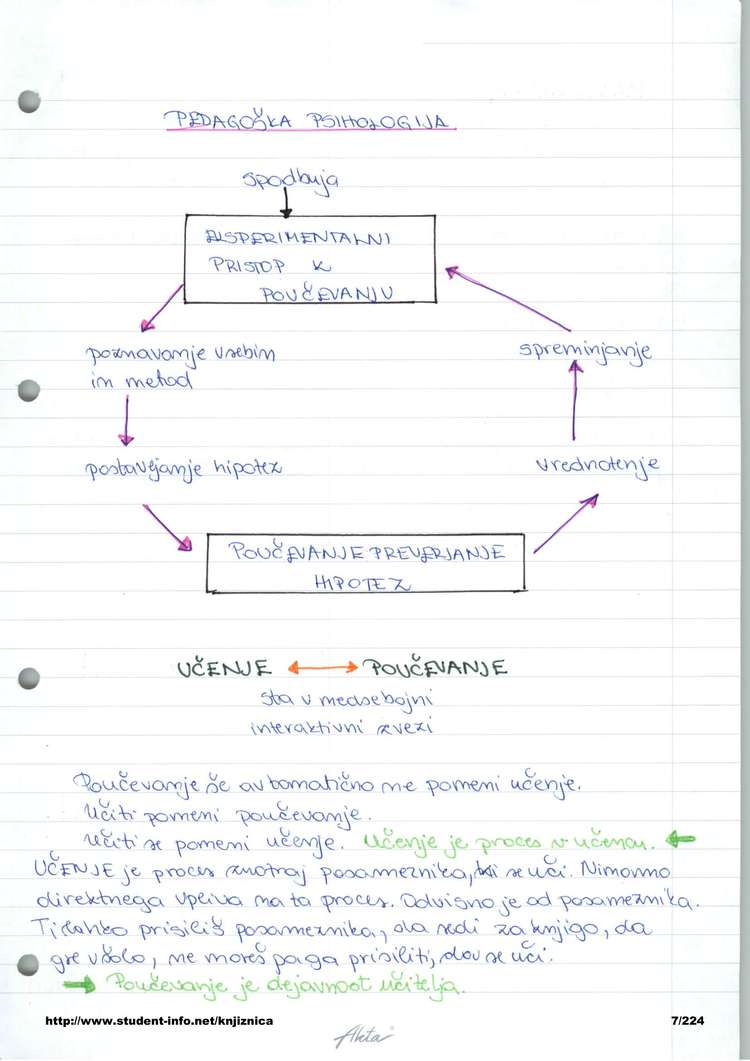 PEDAGOŠKA PSIHOLOGIJA
spodbuja
EKSPERIMENTALNI
PRISTOP K
POUČEVANJU
poznavanje vsebin
in metod
spreminjanje
postavljanje hipotez
vrednotenje
POUČEVANJE PREVERJANJE
HIPOTEZ
UČENJE ↔ POUČEVANJE
sta v medsebojni
interaktivni zvezi
Poučevanje še avtomatično ne pomeni učenje.
Učiti pomeni poučevanje.
Učiti se pomeni učenje. Učenje je proces v učencu. ←
UČENJE je proces znotraj posameznika, ki se uči. Nimamo
direktnega vpliva na ta proces. Odvisno je od posameznika.
Ti lahko prisiliš posameznika, da sedi za knjigo, da
gre v šolo, ne moreš pa ga prisiliti, da se uči.
→ Poučevanje je dejavnost učitelja.
http://www.student-info.net/knjiznica
7/224
Akta